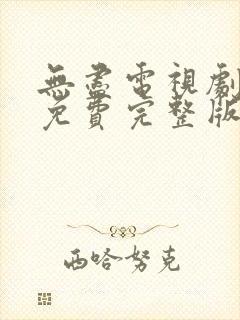 無盡電視劇
免費完整版
西哈努克